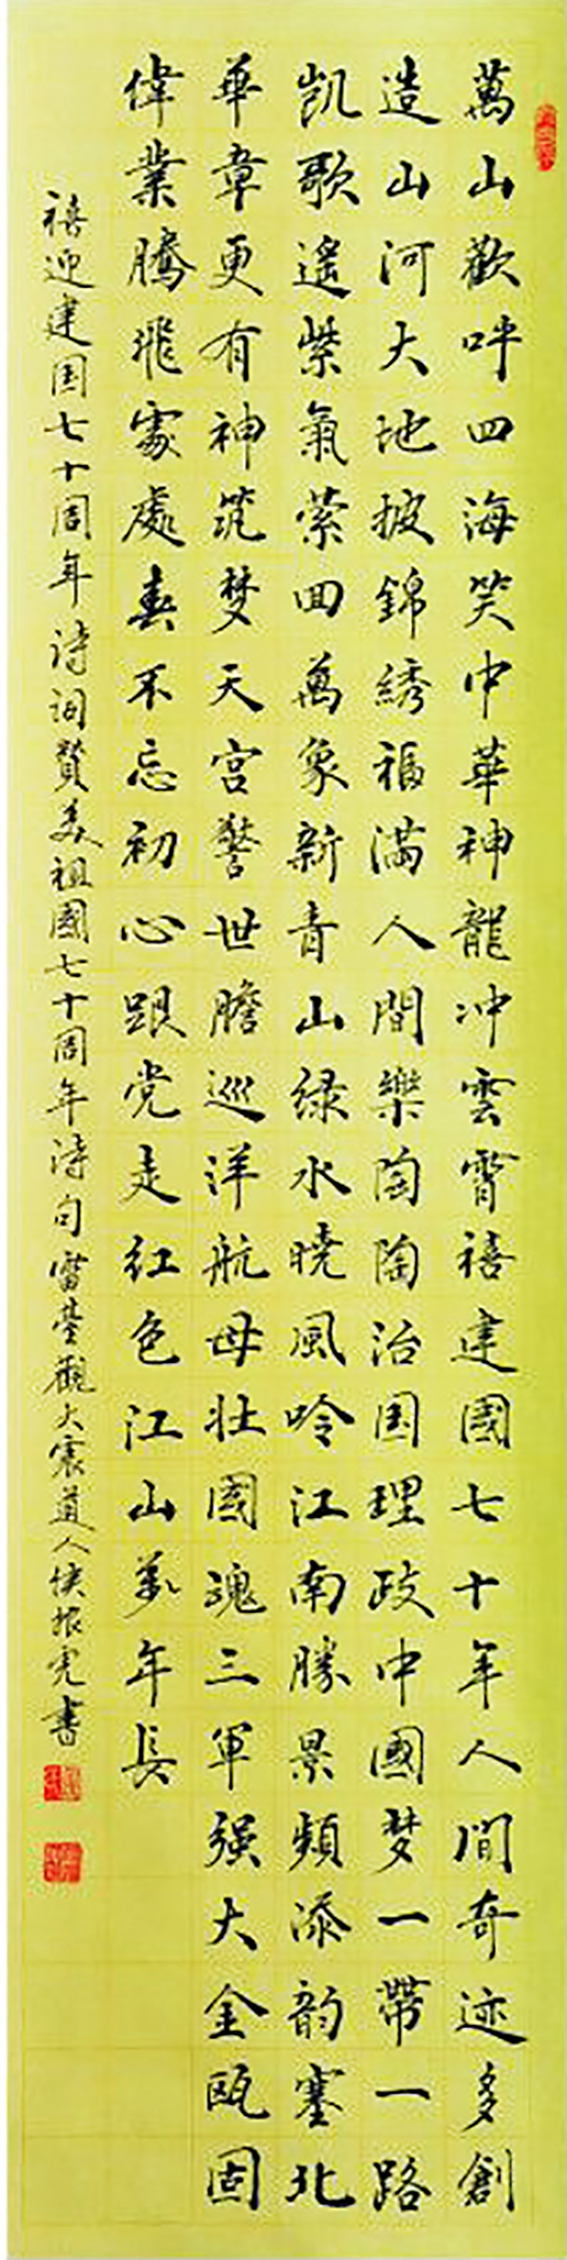 萬山歡呼四海笑中華神龍沖雲霄禧建國七十年人間奇迹多創
造山河大地披錦綉福满人間樂陶陶治国理政中國梦一帶一路
凯歌遥紫氣萦回萬象新青山绿水曉風吟江南勝景頻添韵塞北
華章更有神筑梦天宫警世瞻巡洋航母壮國魂三軍强大金瓯固
偉業腾飛處處春不忘初心跟党走红色江山萬年長
禧迎建国七十周年诗词贊美祖國七十周年诗句雷臺觀大震道人侠振虎書